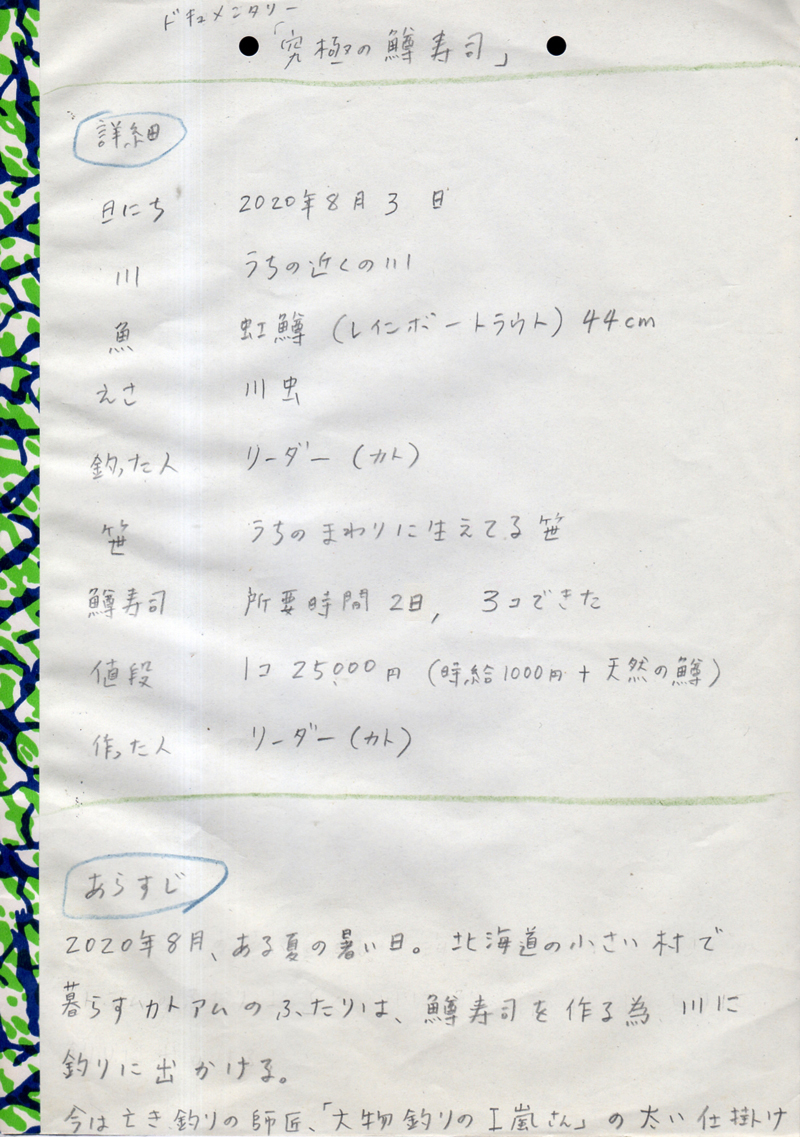 ドキュメンタリー
「究極の鱒寿司」
詳細
日にち 2020年8月3日
川 うちの近くの川
魚 虹鱒(レインボートラウト)44cm
えさ 川虫
釣った人 リーダー(カト)
笹 うちのまわりに生えてる笹
鱒寿司 所要時間2日, 3コできた
値段 1コ 25,000円(時給1000円+天然の鱒)
作った人 リーダー(カト)
あらすじ
2020年8月、ある夏の暑い日。北海道の小さい村で
暮らすカトアムのふたりは、鱒寿司を作る為 川に
釣りに出かける。
今は亡き釣りの師匠、「大物釣りの工嵐さん」の太い仕掛け